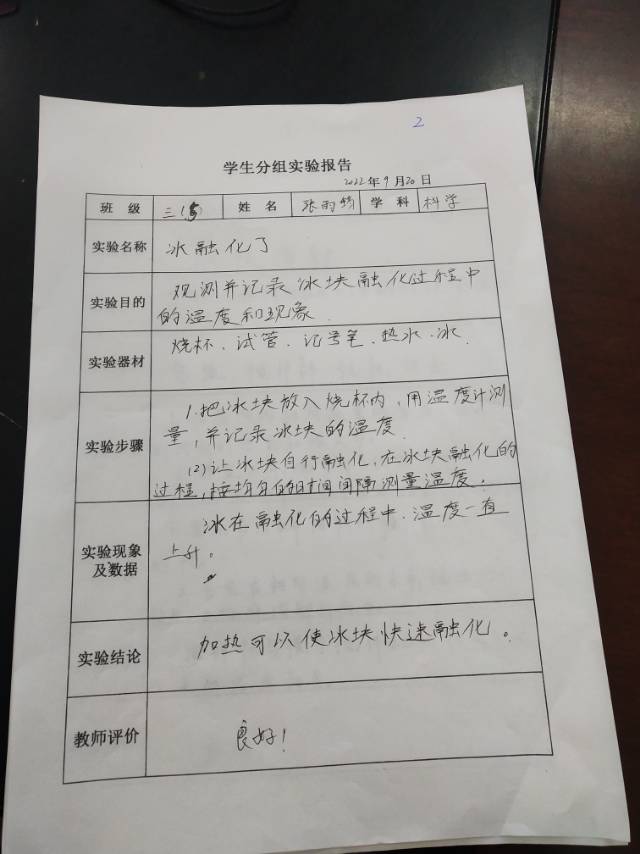 2
学生分组实验报告
2022年9月20日
班 级 三(5) 姓 名 张雨 学 科 科学
实验名称 冰融化了
实验目的 观测并记录冰块融化过程中
的温度和现象
实验器材 烧杯、试管、记号笔、热水、冰
实验步骤 1.把冰块放入烧杯内,用温度计测
量,并记录冰块的温度
(2)让冰块自行融化,在冰块融化的
过程,按均匀的时间间隔测量温度。
实验现象及数据 冰在融化的过程中、温度一直
上升。
实验结论 加热可以使冰块快速融化。
教师评价 良好!